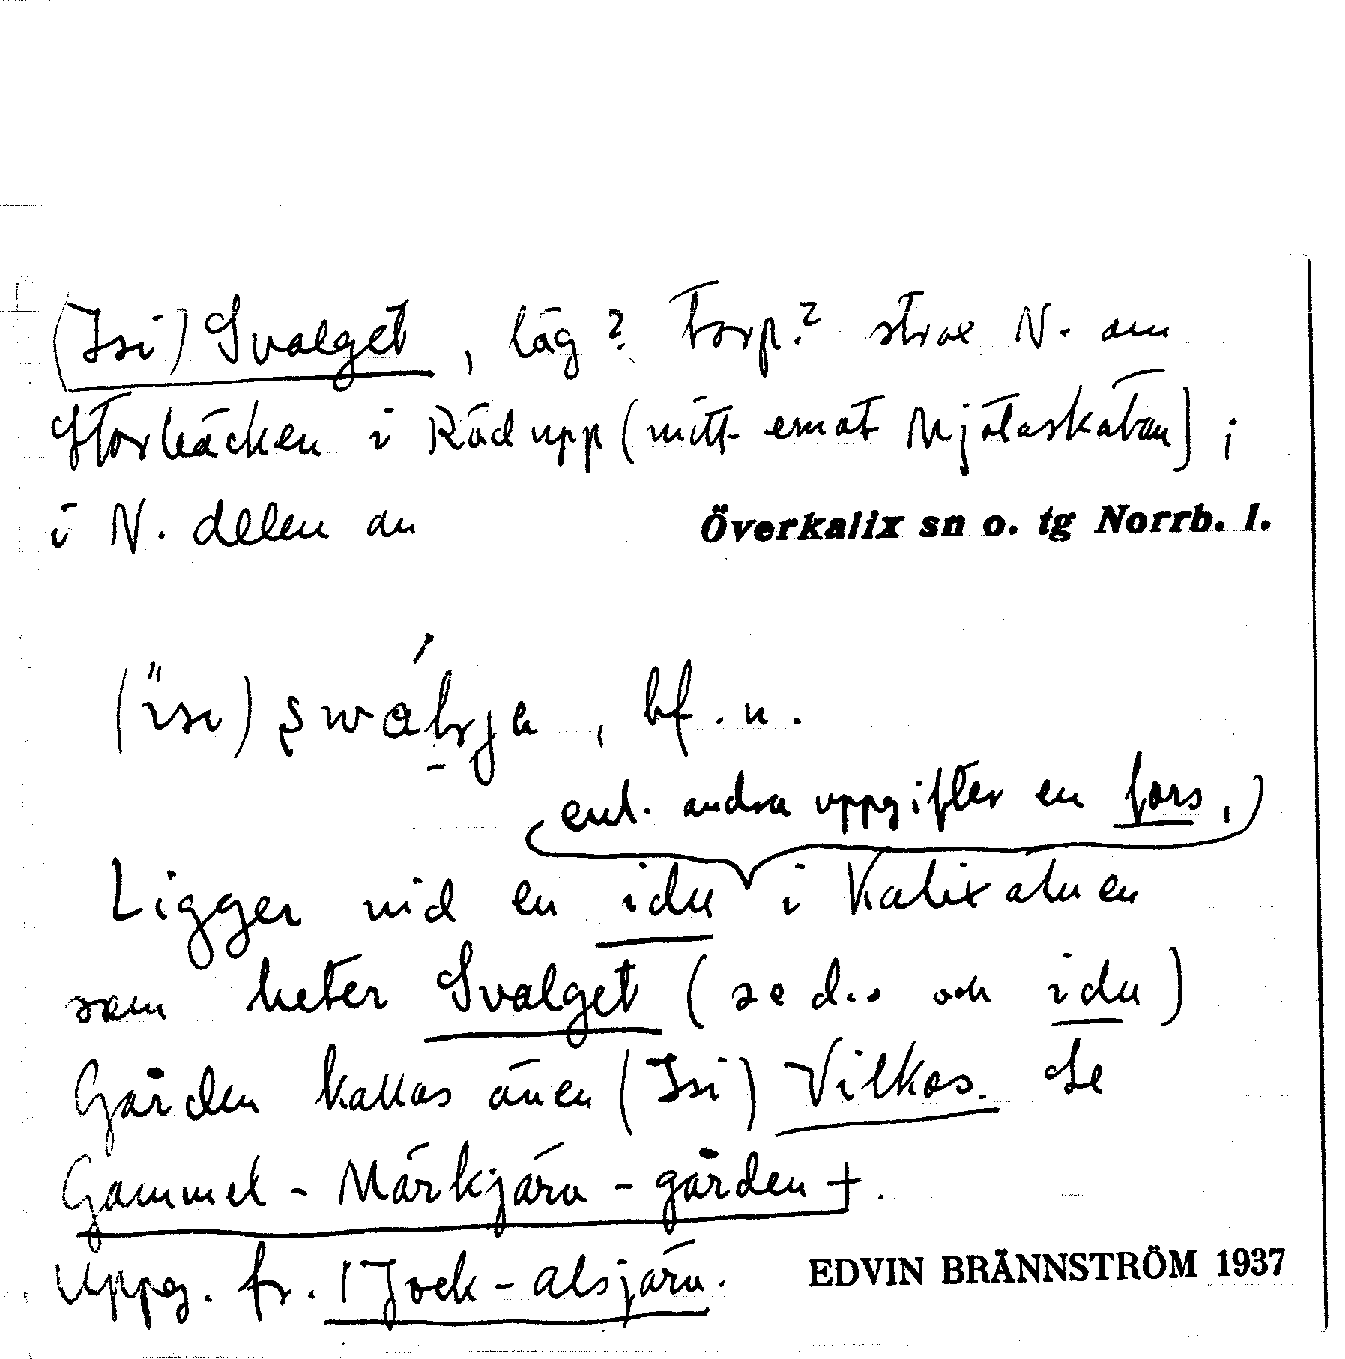 (Isi) Svalget, läg? Torp? strax N. om
Storbäcken i Rödupp (mitt emot Mjötaskatan) ;
i N. delen av
Överkalix sn o. tg Norrb. l.
(ïsi) , bf. n.
enl. andra uppgifter en fors,
Ligger vid en idu i Kalixälven
som heter Svalget (se d.o och idu)
Gården kallas även (Isi) Vilkas. Se
Gammel-Märkjärv-gården +.
Uppg. fr. Jock-alsjärv.
EDVIN BRÄNNSTRÖM 1937